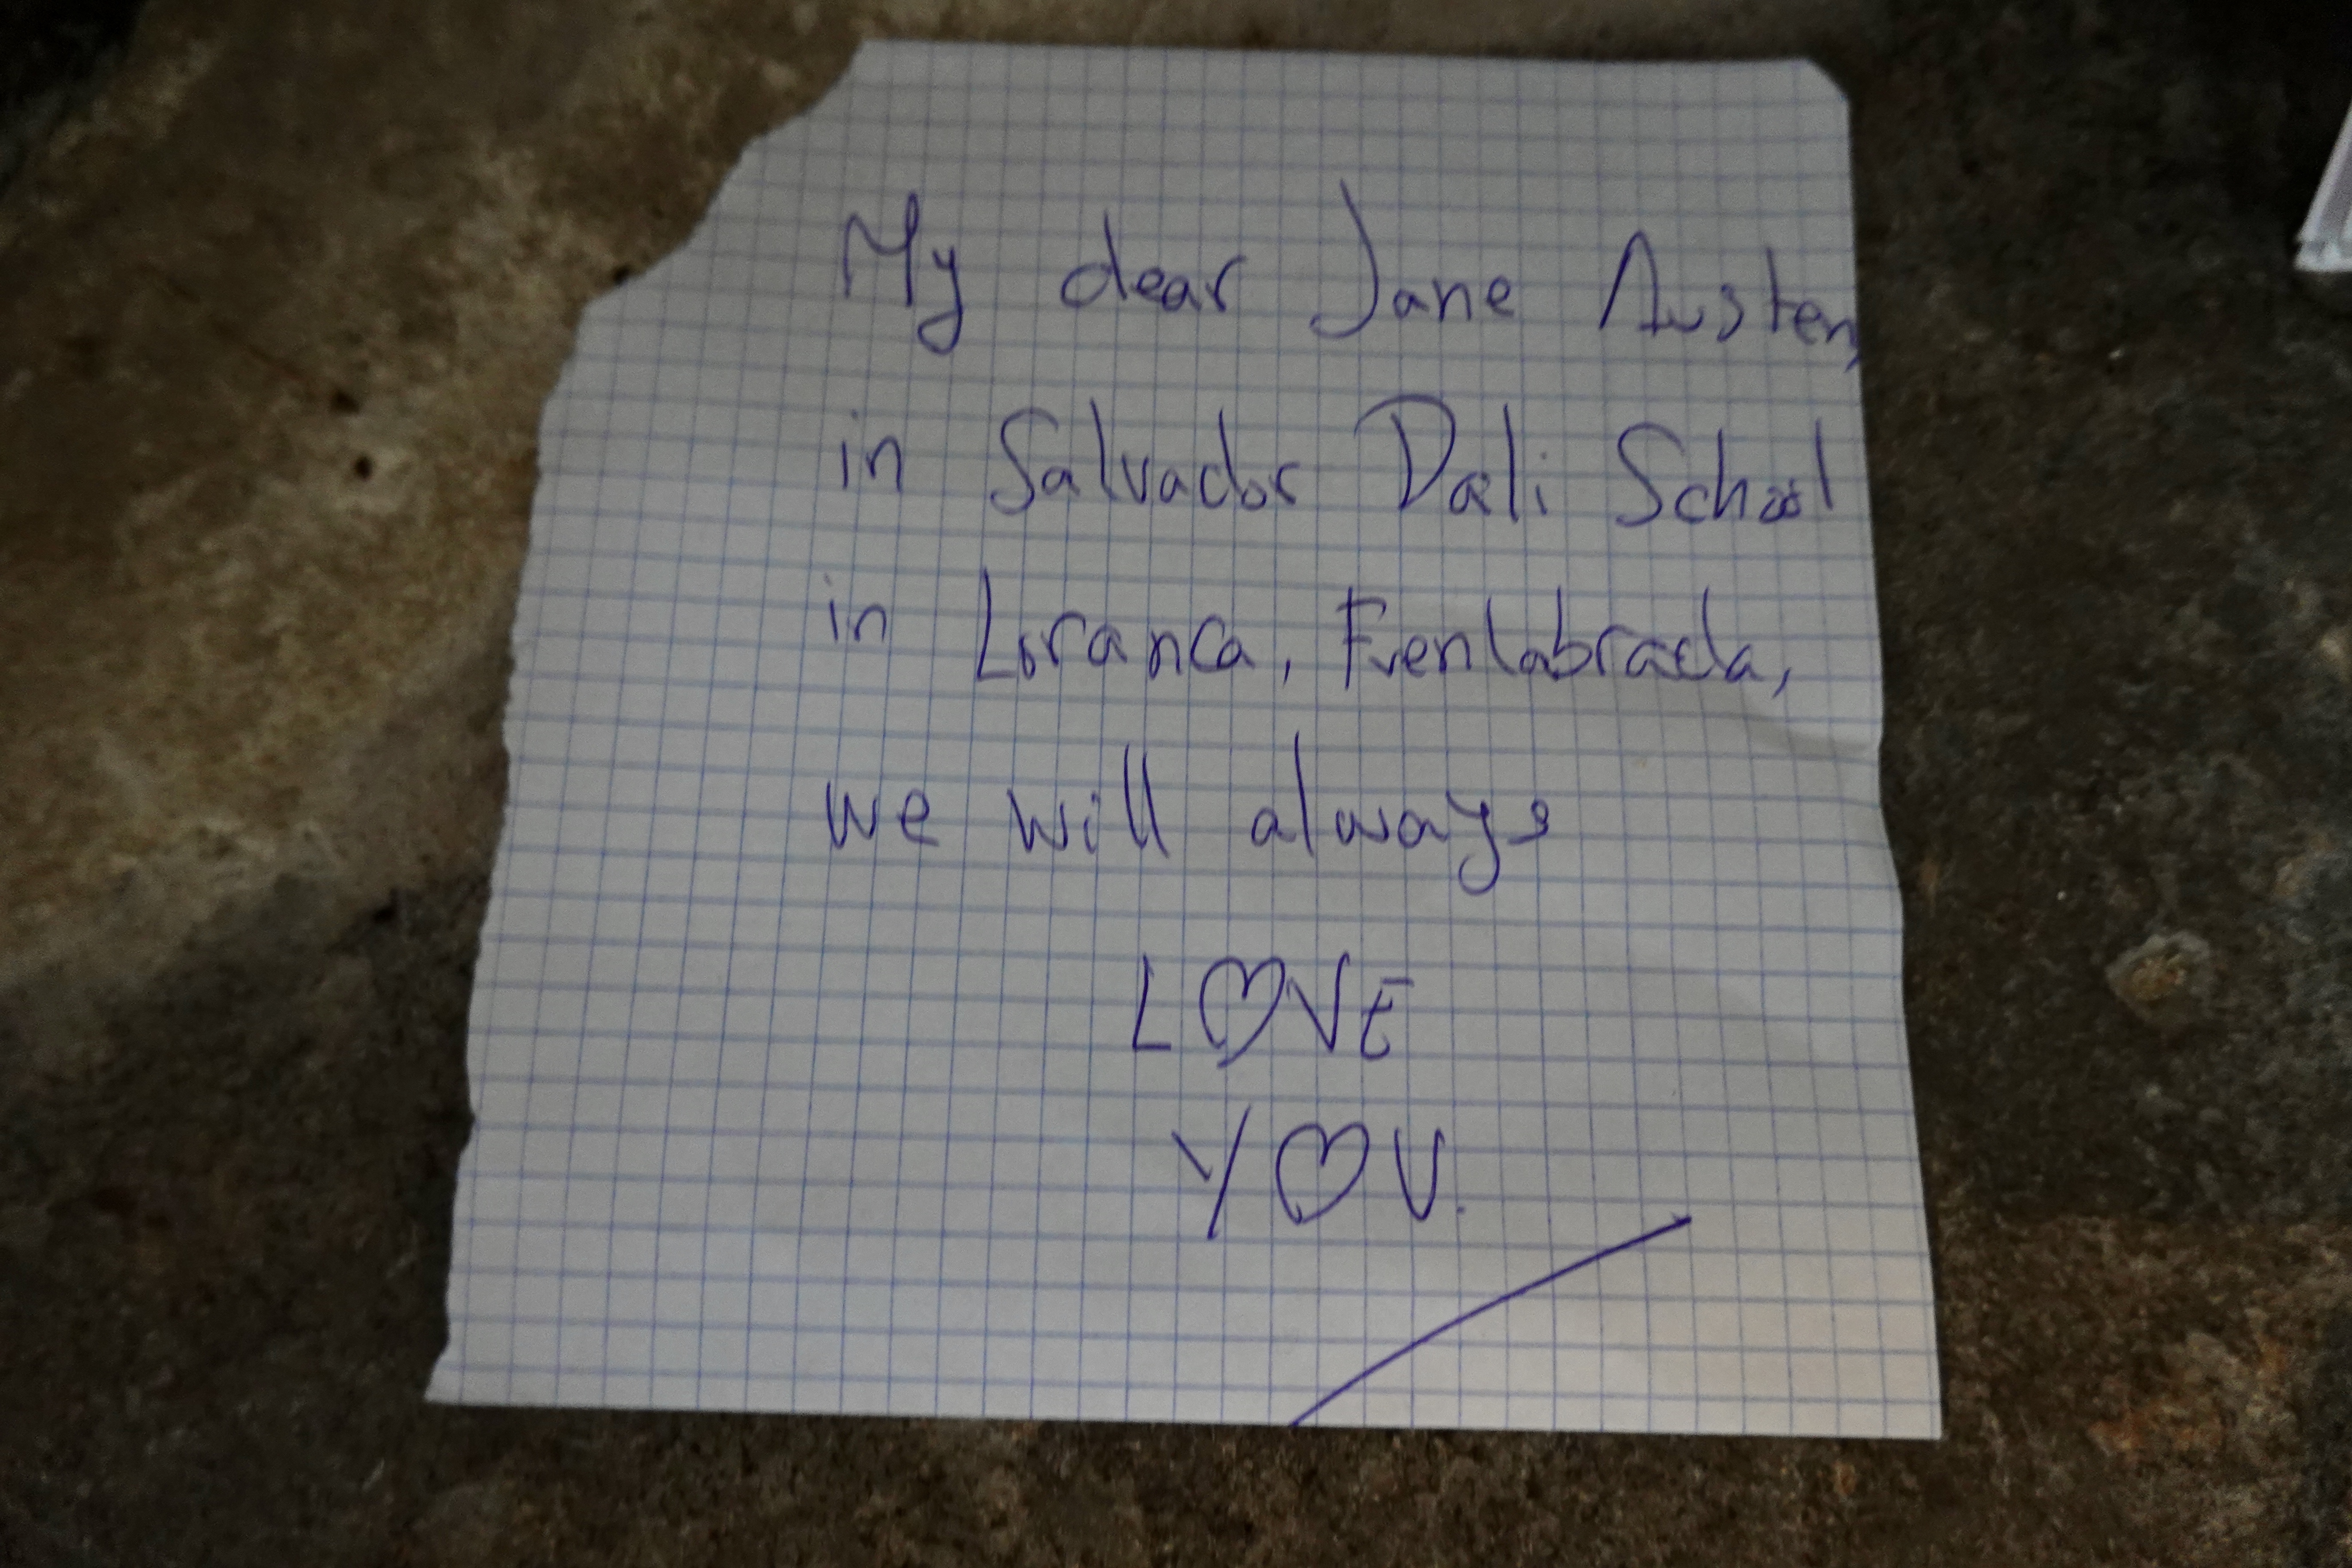 My dear Jane Austen,
in Salvador Dali School
in Loranca, Fuenlabrada,
we will always
L♡VE
Y♡U.